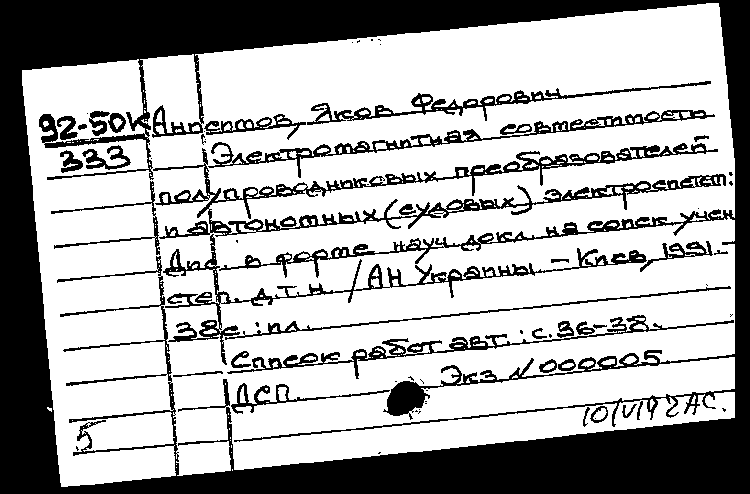 92-50К Анпептов, Яков Федорович
333 Электромагнитная совместимость
полупроводниковых преобразователей
и автономных (судовых) электросистем:
Дис. в форме науч. докл. на соиск. учен.
степ. д.т.н. / АН Украины. – Киев, 1991. –
38с. : ил.
Список работ авт. : с. 36-38.
ДСП. Экз. № 000005
5
10/VI 92 АС.